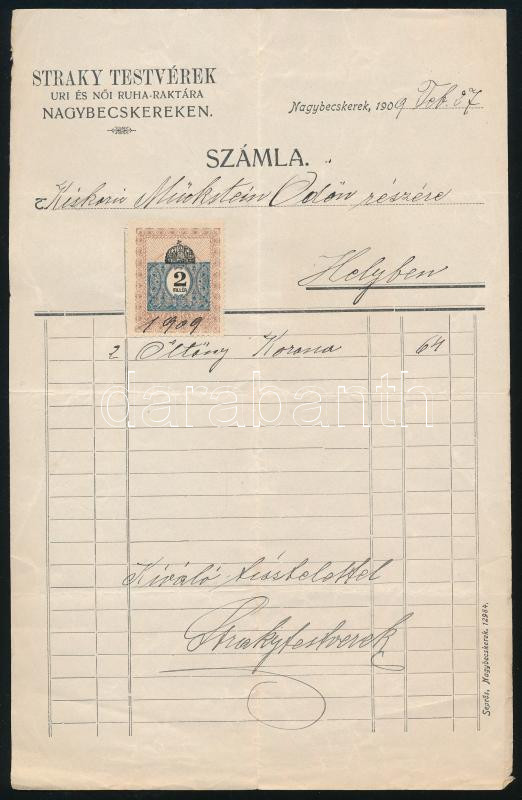 STRAKY TESTVÉREK
URI ÉS NŐI RUHA-RAKTÁRA
NAGYBECSKEREKEN.
Nagybecskerek, 1909
SZÁMLA.
Mückstein Ödön részére
Helyben
2
FILLÉR
1909
2 Öltöny Korona 64
darabanth
Kiváló tisztelettel
Straky testverek
Seprős, Nagybecskerek. 12984.